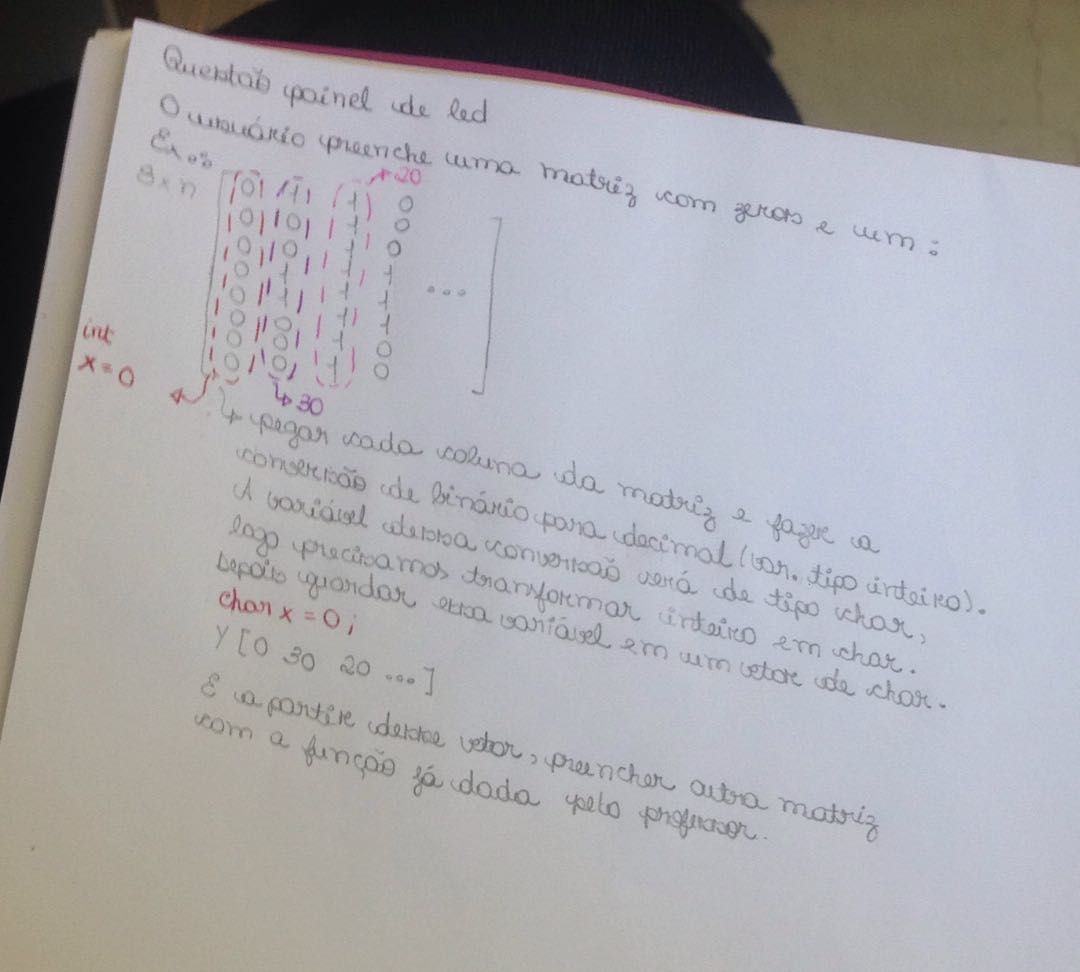 Questão painel de led
O usuário preenche uma matriz com zeros e um:
Ex.:
8xn
20
0 1 1 0
0 0 1 0
0 0 1 0
0 1 1 1
0 1 1 1 ...
0 0 1 1
0 0 1 0
0 0 1 0
int
x=0
30
pegar cada coluna da matriz e fazer a
conversão de binário para decimal (var. tipo inteiro).
A variável dessa conversão será de tipo char,
logo precisamos transformar inteiro em char.
Depois guardar essa variável em um vetor de char.
char x = 0;
Y [0 30 20 ...]
E a partir desse vetor, preencher outra matriz
com a função já dada pelo professor.